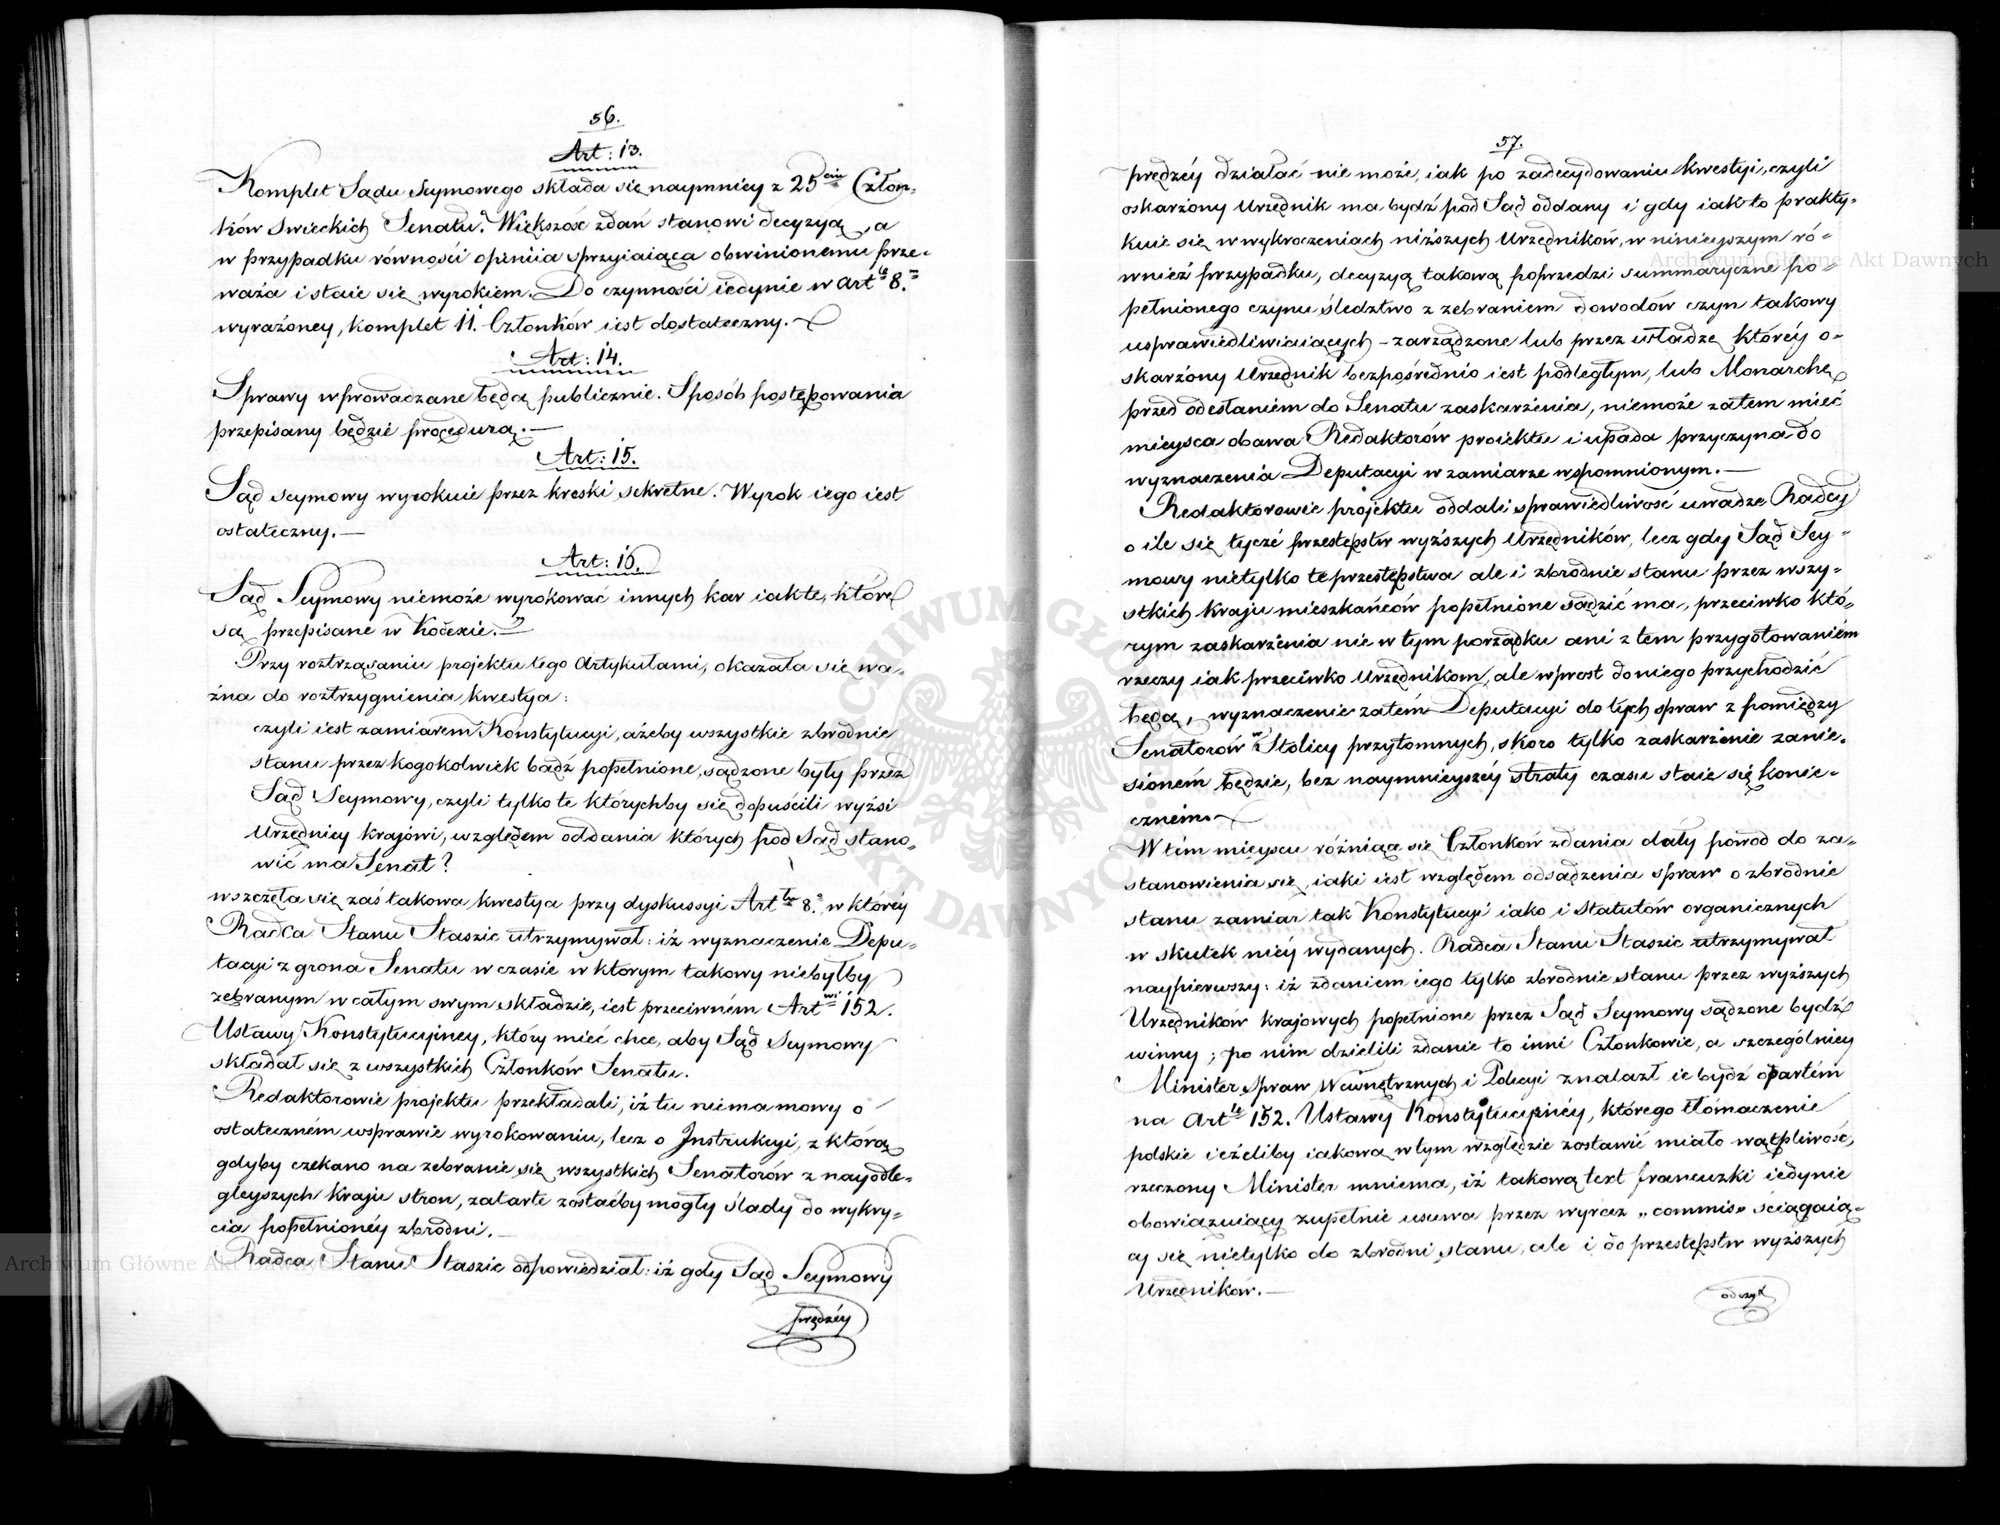 56.
Art: 13.
Komplet Sądu Seymowego składa się naymniey z 25ciu Człon-
ków Swieckich Senatu. Większość zdań stanowi decyzyą, a
w przypadku równości opiniia sprzyiaiąca obwinionemu prze-
waża i staie się wyrokiem. Do czynności iedynie w Artle 8.
wyrażoney, komplet 11. Członków iest dostateczny.
Art: 14.
Sprawy wprowadzane będą publicznie. Sposób postępowania
przepisany będzie procedurą.
Art: 15.
Sąd seymowy wyrokuie przez kreski sekretne. Wyrok iego iest
ostateczny.
Art: 16.
Sąd Seymowy niemoże wyrokować innych kar iak te, które
są przepisane w Kodexie."
Przy roztrząsaniu projektu tego Artykułami, okazała się wa-
żna do roztrzygnienia kwestya:
czyli iest zamiarem Konstytucyi, ażeby wszystkie zbrodnie
stanu przez kogokolwiek bądź popełnione, sądzone były przez
Sąd Seymowy, czyli tylko te którychby się dopuścili wyżsi
Urzędnicy krajowi, względem oddania których pod Sąd stano-
wić ma Senat?
wszczęła się zaś takowa kwestya przy dyskussyi Artlu 8. w któréy
Radca Stanu Staszic utrzymywał: iż wyznaczenie Depu-
tacyi z grona Senatu w czasie w którym takowy niebyłby
zebranym w całym swym składzie, iest przeciwném Artwi 152.
Ustawy Konstytucyiney, który mieć chce, aby Sąd Seymowy
składał się z wszystkich Członków Senatu.
Redaktorowie projektu przekładali, iż tu niema mowy o
ostateczném wsprawie wyrokowaniu, lecz o Instrukcyi, z którą
gdyby czekano na zebranie się wszystkich Senatorów z nayodle-
gleyszych kraju stron, zatarte zostaćby mogły ślady do wykry-
cia popełnionéy zbrodni.
Radca Stanu Staszic odpowiedział: iż gdy Sąd Seymowy
prędzéy
57.
prędzéy działać nie może, iak po zadecydowaniu kwestyi, czyli
oskarżony Urzędnik ma bydź pod Sąd oddany i gdy iak to prakty-
kuie się w wykroczeniach niższych Urzędników, w ninieyszym ró-
wnież przypadku, decyzyą takową poprzedzi summaryczne po-
pełnionego czynu śledztwo z zebraniem dowodów czyn takowy
usprawiedliwiaiących - zarządzone lub przez władzę któréy o-
skarżony Urzędnik bezpośrednio iest podległym, lub Monarchę
przed odesłaniem do Senatu zaskarżenia, niemoże zatem mieć
mieysca obawa Redaktorów proiektu i upada przyczyna do
wyznaczenia Deputacyi w zamiarze wspomnionym.
Redaktorowie projektu oddali sprawiedliwość uwadze Radcy
o ile się tycze przestępstw wyższych Urzędników, lecz gdy Sąd Sey-
mowy nietylko te przestępstwa ale i zbrodnie stanu przez wszy-
stkich kraju mieszkańców popełnione sądzić ma, przeciwko któ-
rym zaskarżenia nie w tym porządku ani z tem przygotowaniem
rzeczy iak przeciwko Urzędnikom, ale wprost do niego przychodzić
będą, wyznaczenie zatém Deputacyi do tych spraw z pomiędzy
Senatorów w Stolicy przytomnych, skoro tylko zaskarżenie zanie-
sioném będzie, bez naymnieyszéy straty czasu staie się konie-
czném.
W tém mieyscu różniące się Członków zdania dały powód do za-
stanowienia się, iaki iest względem odsądzenia spraw o zbrodnie
stanu zamiar tak Konstytucyi iako i Statutów organicznych
w skutek niéy wydanych. Radca Stanu Staszic utrzymywał
naypierwszy: iż zdaniem iego tylko zbrodnie stanu przez wyższych
Urzędników krajowych popełnione przez Sąd Seymowy sądzone bydź
winny; po nim dzielili zdanie to inni Członkowie, a szczególniey
Minister Spraw Wewnętrznych i Policyi znalazł ie bydź opartém
na Artle 152. Ustawy Konstytucyinéy, którego tłómaczenie
polskie ieżeliby iakową w tym względzie zostawić miało wątpliwość,
rzeczony Minister mniema, iż takową text francuzki iedynie
obowiązuiący zupełnie usuwa przez wyraz „commis" ściągaią-
cy się nietylko do zbrodni stanu, ale i do przestępstw wyższych
Urzędników.
odczyt
Archiwum Główne Akt Dawnych
Archiwum Główne Akt Dawnych
ARCHIWUM GŁÓWNE AKT DAWNYCH